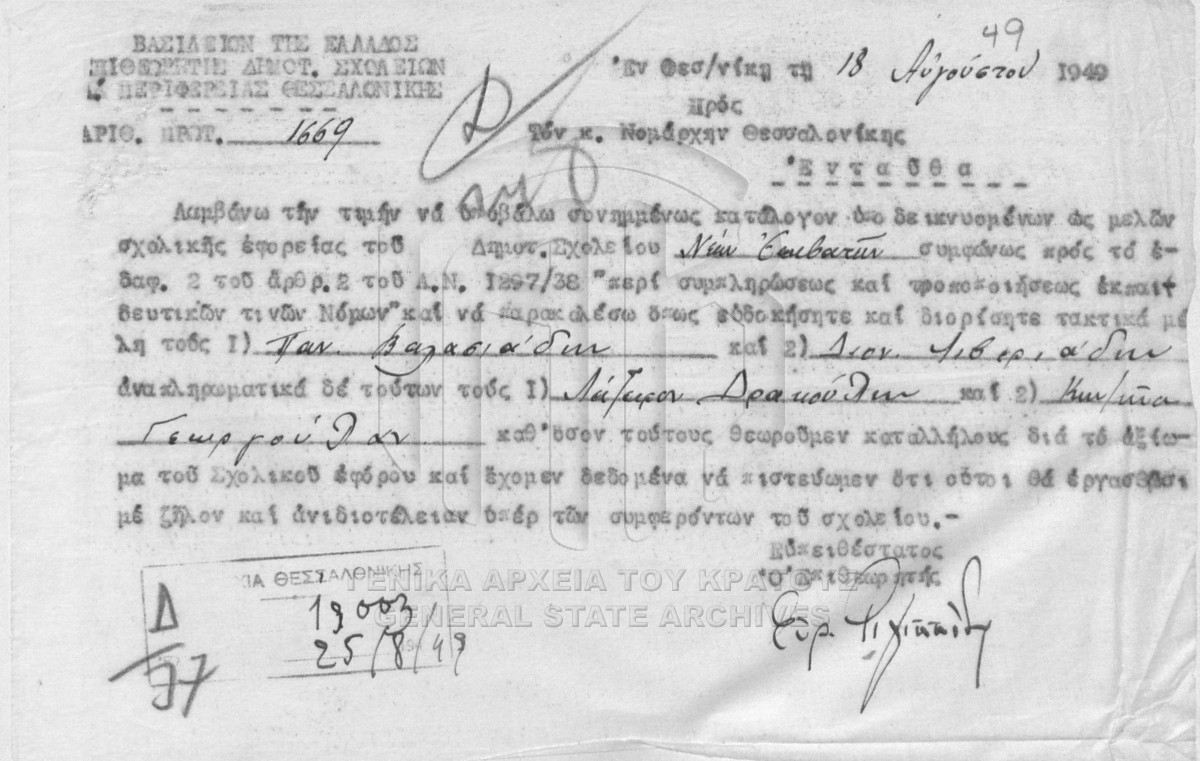 49
ΒΑΣΙΛΕΙΟΝ ΤΗΣ ΕΛΛΑΔΟΣ
ΕΠΙΘΕΩΡΗΤΗΣ ΔΗΜΟΤ. ΣΧΟΛΕΙΩΝ
ΠΕΡΙΦΕΡΕΙΑΣ ΘΕΣΣΑΛΟΝΙΚΗΣ
ΑΡΙΘ. ΠΡΩΤ. 1669
Ἐν Θεσ/νίκῃ τῇ 18 Αὐγούστου 1949
Πρός
Τόν κ. Νομάρχην Θεσσαλονίκης
Ἐνταῦθα
Λαμβάνω τήν τιμήν νά ὑποβάλω συνημμένως κατάλογον ὑποδεικνυομένων ὡς μελῶν
σχολικῆς ἐφορείας τοῦ Δημοτ. Σχολείου Νέων Ἐπιβατῶν συμφώνως πρός τό ἐ-
δαφ. 2 τοῦ ἄρθρ. 2 τοῦ Α.Ν. 1297/38 "περί συμπληρώσεως καί τροποποιήσεως ἐκπαι
δευτικῶν τινῶν Νόμων" καί νά παρακαλέσω ὅπως εὐδοκήσητε καί διορίσητε τακτικά μέ
λη τούς 1) Παν. Βαλασιάδην καί 2) Διον.
ἀναπληρωματικά δέ τούτων τούς 1) Λάζαρον Δρακούλην καί 2) Κων/τῖνον
Γεωργούλαν καθ' ὅσον τούτους θεωροῦμεν καταλλήλους διά τό ἀξίω-
μα τοῦ Σχολικοῦ ἐφόρου καί ἔχομεν δεδομένα νά πιστεύωμεν ὅτι οὗτοι θά ἐργασθῶσι
μέ ζῆλον καί ἀνιδιοτέλειαν ὑπέρ τῶν συμφερόντων τοῦ σχολείου.-
Εὐπειθέστατος
Ὁ Ἐπιθεωρητής
ΧΙΑ ΘΕΣΣΑΛΟΝΙΚΗΣ
19003
25/8/49
Δ
77
ΓΕΝΙΚΑ ΑΡΧΕΙΑ ΤΟΥ ΚΡΑΤΟΥΣ
GENERAL STATE ARCHIVES